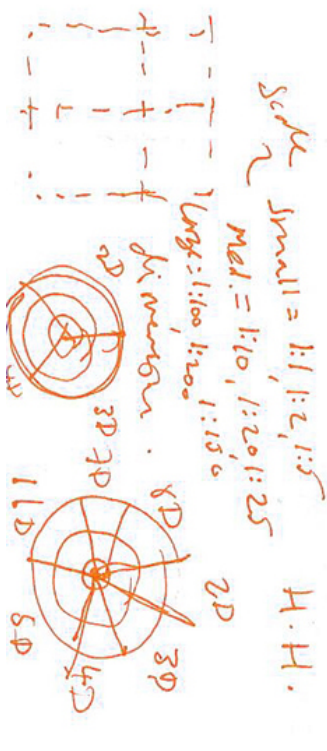 H.H.
scale
Small = 1:1, 1:2, 1:5
Med. = 1:10, 1:20, 1:25
Large = 1:100, 1:200, 1:150
dimension.
2D
3D
4D
7D
8D
2D
3D
4D
5D
11D